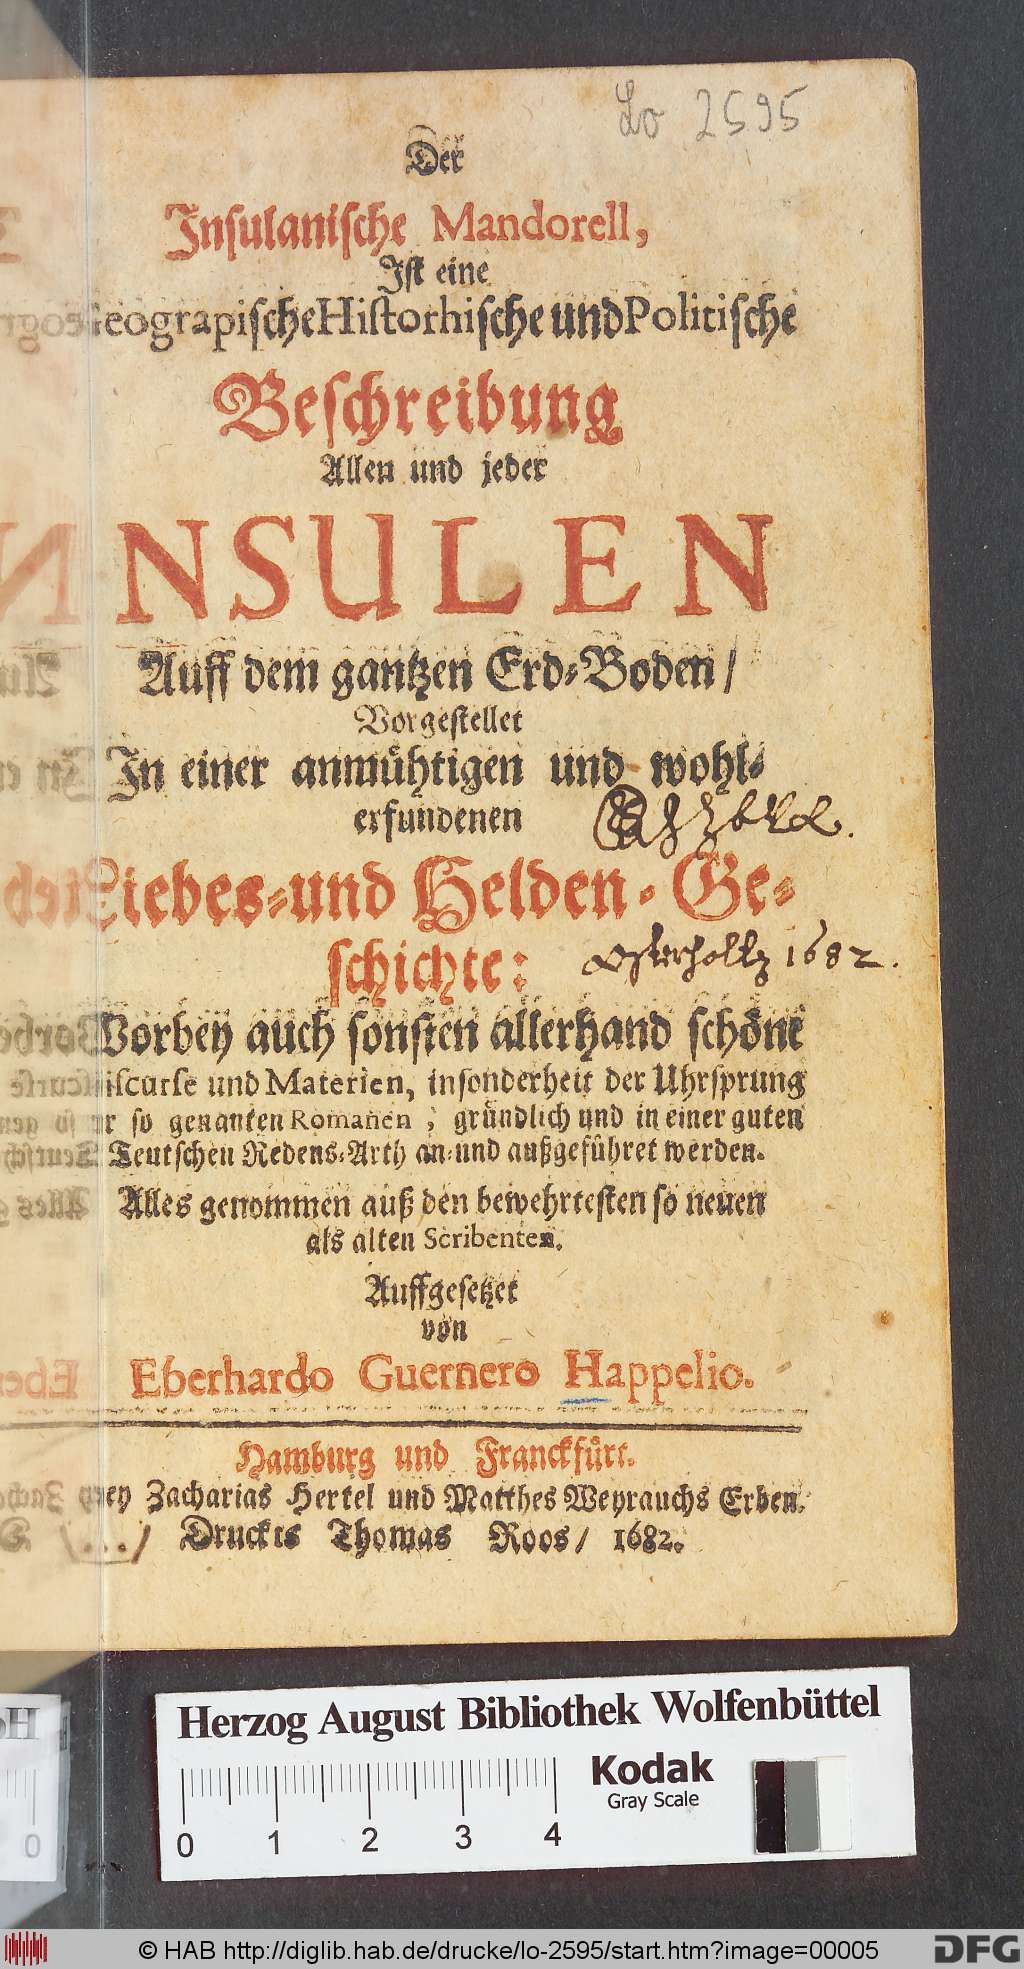 Lo 2595
Der
Insulanische Mandorell,
Ist eine
GeograpischeHistorhische und Politische
Beschreibung
Allen und jeder
INSULEN
Auff dem gantzen Erd-Boden/
Vorgestellet
In einer anmühtigen und wohl-
erfundenen
Liebes-und Helden-Ge-
schichte:
Osterholtz 1682.
Worbey auch sonsten allerhand schöne
Discurse und Materien, insonderheit der Uhrsprung
der so genanten Romanen, gründlich und in einer guten
Teutschen Redens-Arth an-und außgeführet werden.
Alles genommen auß den bewehrtesten so neuen
als alten Scribenten.
Auffgesetzet
von
Eberhardo Guernero Happelio.
Hamburg und Franckfürt.
Bey Zacharias Hertel und Matthes Weyrauchs Erben.
Druckts Thomas Roos/ 1682.
Herzog August Bibliothek Wolfenbüttel
Kodak
Gray Scale
0 1 2 3 4
© HAB http://diglib.hab.de/drucke/lo-2595/start.htm?image=00005
DFG